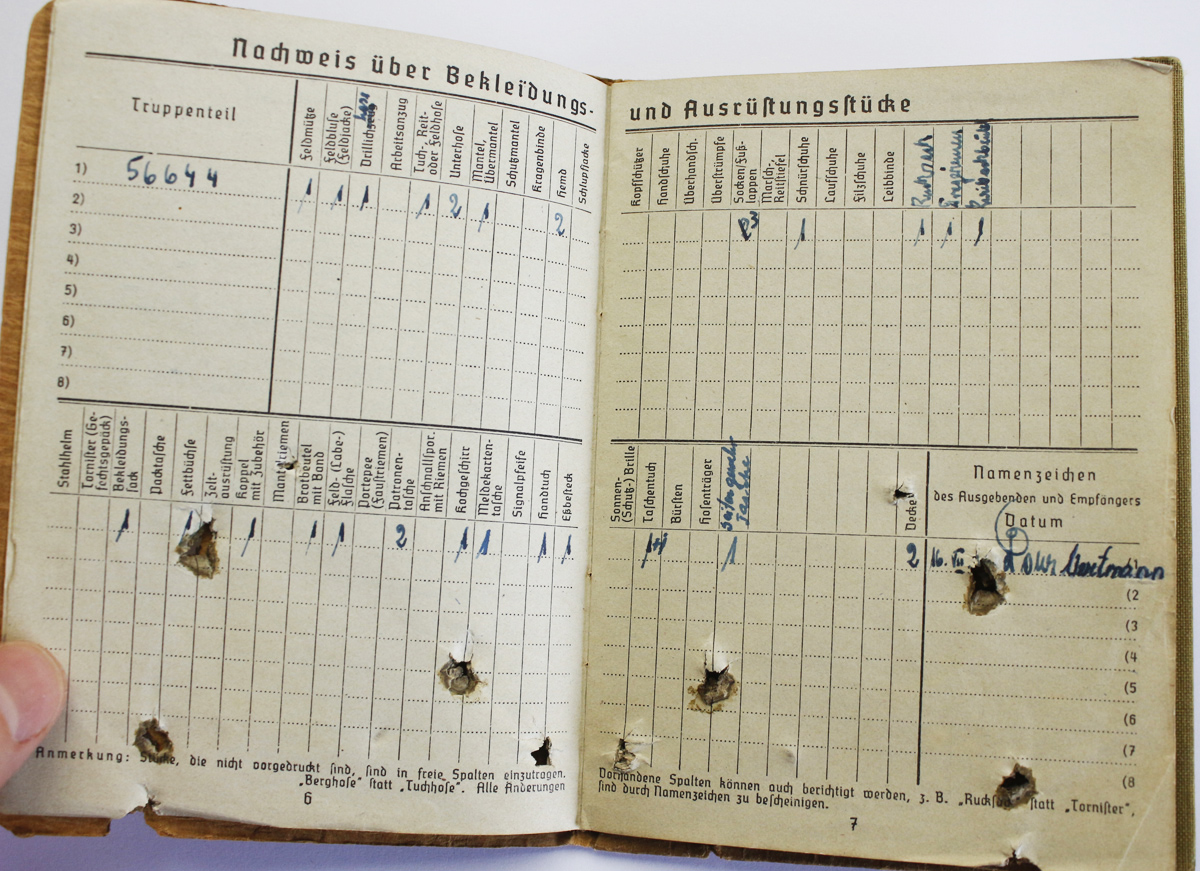 Nachweis über Bekleidungs-
Truppenteil
Feldmütze
Feldbluse
(Feldjacke)
Drillich
Arbeitsanzug
Tuch-, Reit-
oder Feldhose
Unterhose
Mantel,
Übermantel
Schutzmantel
Kragenbinde
Hemd
Schlupfjacke
1) 56644
1 1 1 1 2 1 2
2)
3)
4)
5)
6)
7)
8)
Stahlhelm
Tornister (Ge-
fechtsgepäck)
Bekleidungs-
sack
Packtasche
Fettbüchse
Zelt-
ausrüstung
Koppel
mit Zubehör
Mantelriemen
Brotbeutel
mit Band
Feld- (Labe-)
flasche
Portepee
(Faustriemen)
Patronen-
tasche
Anschnallspor.
mit Riemen
Kochgeschirr
Meldekarten-
tasche
Signalpfeife
Handtuch
Eßbesteck
1 1 1 1 1 2 1 1 1 1
Anmerkung: Stücke, die nicht vorgedruckt sind, sind in freie Spalten einzutragen.
„Berghose“ statt „Tuchhose“. Alle Änderungen
6
und Ausrüstungsstücke
Kopfschützer
Handschuhe
Überhandsch.
Überstrümpfe
Socken/Fuß-
lappen
Marsch-,
Reitstiefel
Schnürschuhe
Laufschuhe
Filzschuhe
Leibbinde
Rucksack
1 1 1 1
Sonnen-
(Schutz-) Brille
Taschentuch
Bürsten
Hosenträger
Seitengewehr
Tasche
Decke
Namenzeichen
des Ausgebenden und Empfängers
Datum
1 1 2 16. VII
(2
(3
(4
(5
(6
(7
(8
Vorhandene Spalten können auch berichtigt werden, z. B. „Rucksack“ statt „Tornister“,
sind durch Namenzeichen zu bescheinigen.
7